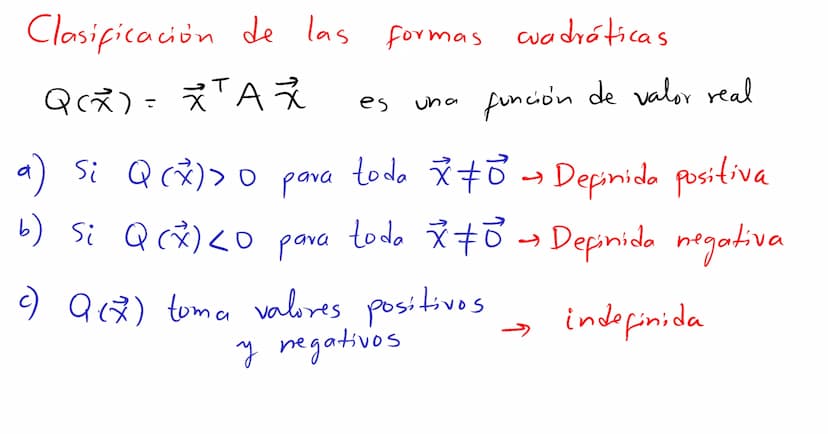 Clasificación de las formas cuadráticas
Q(x⃗) = x⃗ᵀA x⃗ es una función de valor real
a) Si Q(x⃗)>0 para toda x⃗≠0⃗ → Definida positiva
b) Si Q(x⃗)<0 para toda x⃗≠0⃗ → Definida negativa
c) Q(x⃗) toma valores positivos
y negativos → indefinida